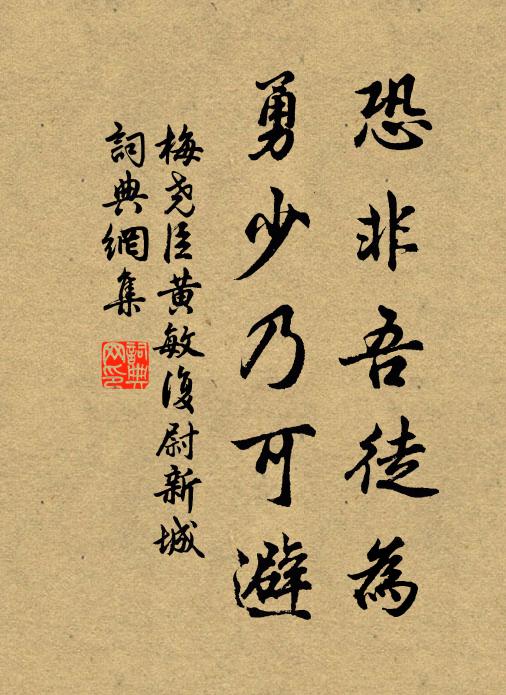 恐非吾徒為
勇少乃可避
梅堯臣黄敏復尉新城
詞典網集
詞典网印